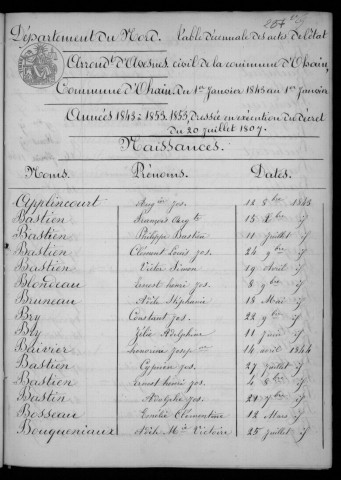 Département du Nord. Table décennale des actes de l'état
Arrond.t d'Avesnes civil de la commune d'Ohain,
Commune d'Ohain. du 1er Janvier 1843 au 1er Janvier
Années 1843 à 1853. 1853, Dressée en exécution du décret
du 20 juillet 1807.
Naissances.
Noms. Prénoms. Dates.
Applincourt jos. 18 8bre 1843
Bastien françois 15 id
Bastien Philippe Bastien 11 juillet id
Bastien Clément Louis jos. 24 9bre id
Bastien Victor Simon 19 Avril id
Blondeau Ernest henri jos. 8 9bre id
Bruneau Adèle Stéphanie 18 Mai id
Bry Constant jos. 22 9bre id
Bly Zélie Adolphine 11 juin id
Baivier honorine 14 avril 1844
Bastien Cyprien jos. 27 juillet id
Bastien Ernest henri jos. 4 id
Bastin Adolphe jos. 27 id
Bosseau Emélie Clémentine 12 Mars id
Bouqueniaux Adèle Mie Victoire 25 juillet id